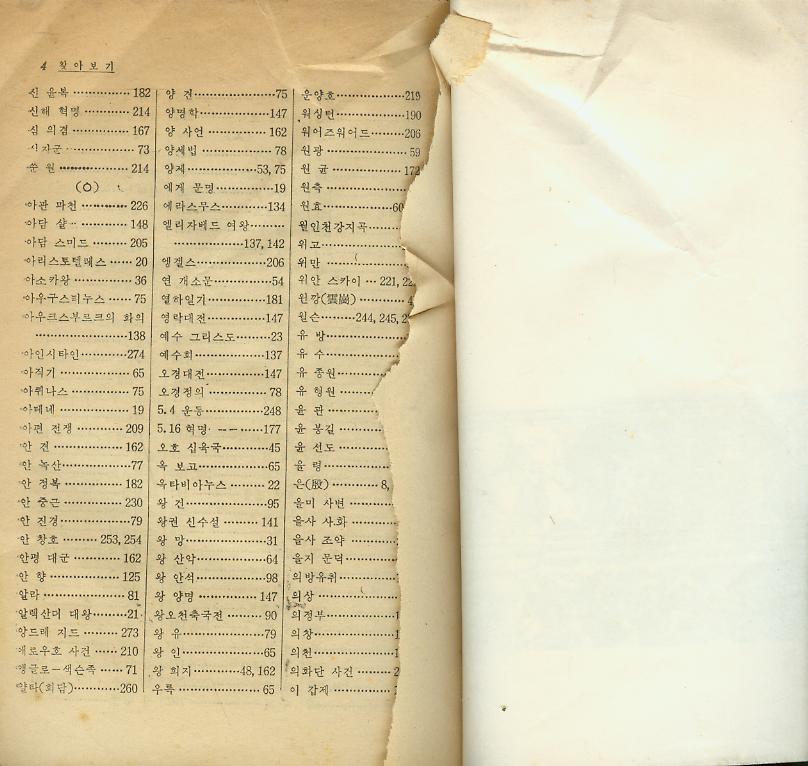 4 찾아보기
신 윤복 182
신해 혁명 214
심 의겸 167
십자군 73
쑨 원 214
(ㅇ)
아관 파천 226
아담 샬 148
아담 스미드 205
아리스토텔레스 20
아소카왕 36
아우구스티누스 75
아우크스부르크의 화의
138
아인시타인 274
아직기 65
아퀴나스 75
아테네 19
아편 전쟁 209
안 견 162
안 녹산 77
안 정복 182
안 중근 230
안 진경 79
안 창호 253, 254
안평 대군 162
안 향 125
알라 81
알렉산더 대왕 21
앙드레 지드 273
애로우호 사건 210
앵글로—색슨족 71
얄타(회담) 260
양 견 75
양명학 147
양 사언 162
양세법 78
양제 53, 75
에게 문명 19
에라스무스 134
엘리자베드 여왕
137, 142
엥겔스 206
연 개소문 54
열하일기 181
영락대전 147
예수 그리스도 23
예수회 137
오경대전 147
오경정의 78
5.4 운동 248
5.16 혁명 177
오호 십육국 45
옥 보고 65
옥타비아누스 22
왕 건 95
왕권 신수설 141
왕 망 31
왕 산악 64
왕 안석 98
왕 양명 147
왕오천축국전 90
왕 유 79
왕 인 65
왕 희지 48, 162
우륵 65
운양호 219
워싱턴 190
워어즈워어드 206
원광 59
원 균 172
원측
원효 60
월인천강지곡
위고
위만
위안 스카이 221, 22
윈깡(雲崗) 4
윌슨 244, 245, 2
유 방
유 수
유 종원
유 형원
윤 관
윤 봉길
윤 선도
율 령
은(殷) 8,
을미 사변
을사 사화
을사 조약
을지 문덕
의방유취
의상
의정부 1
의창 1
의천 1
의화단 사건 2
이 갑제